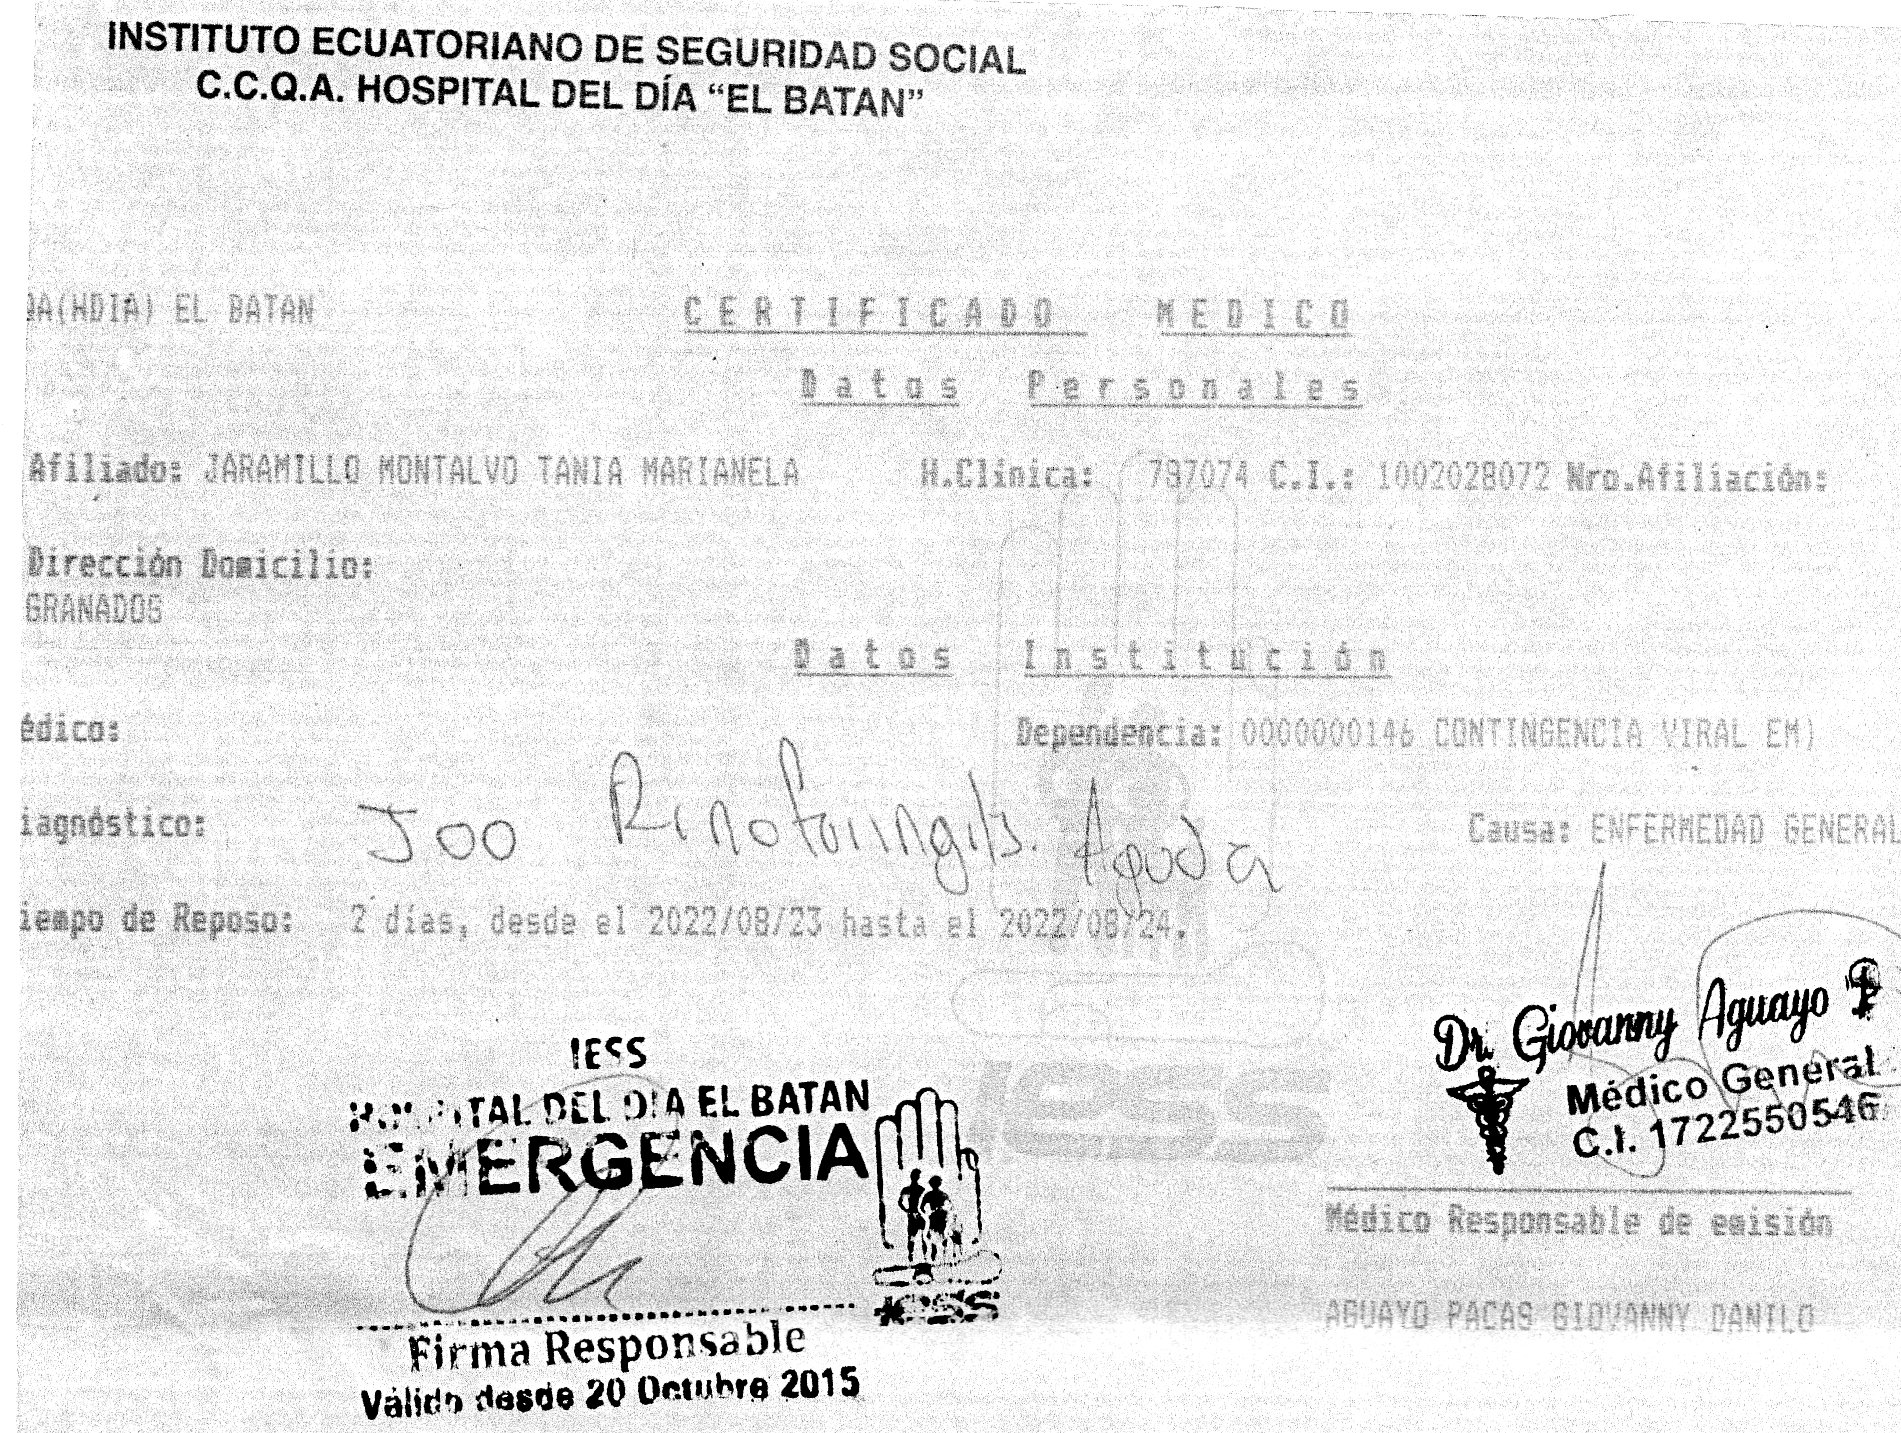 INSTITUTO ECUATORIANO DE SEGURIDAD SOCIAL
C.C.Q.A. HOSPITAL DEL DÍA “EL BATAN”
QA(HDIA) EL BATAN
CERTIFICADO MEDICO
Datos Personales
Afiliado: JARAMILLO MONTALVO TANIA MARIANELA H.Clínica: 787074 C.I.: 1002028072 Nro.Afiliación:
Dirección Domicilio:
GRANADOS
Datos Institución
édico: Dependencia: 0000000146 CONTINGENCIA VIRAL EM)
iagnóstico: J00 Rinofaringitis Aguda Causa: ENFERMEDAD GENERAL
iempo de Reposo: 2 días, desde el 2022/08/23 hasta el 2022/08/24.
Dr. Giovanny Aguayo P
Médico General
C.I. 1722550546
IESS
HOSPITAL DEL DIA EL BATAN
EMERGENCIA
IESS
Firma Responsable
Válido desde 20 Octubre 2015
Médico Responsable de emisión
AGUAYO PACAS GIOVANNY DANILO